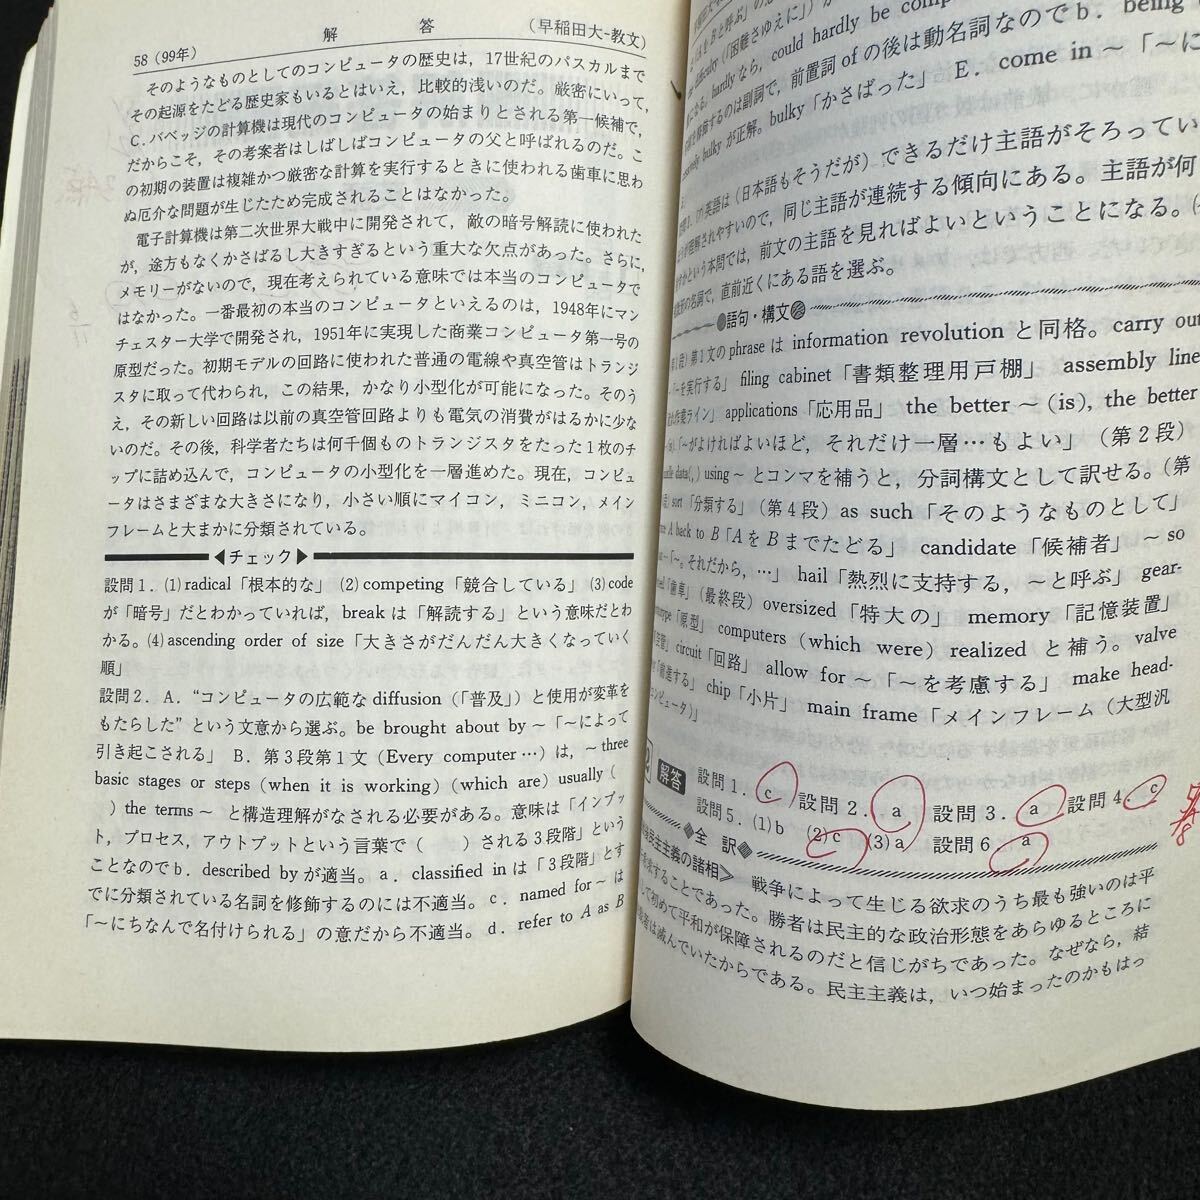 58 (99年) 解 答 (早稲田大-教文)
そのようなものとしてのコンピュータの歴史は，17世紀のパスカルまで
その起源をたどる歴史家もいるとはいえ，比較的浅いのだ。厳密にいって，
C. バベッジの計算機は現代のコンピュータの始まりとされる第一候補で，
だからこそ，その考案者はしばしばコンピュータの父と呼ばれるのだ。こ
の初期の装置は複雑かつ厳密な計算を実行するときに使われる歯車に思わ
ぬ厄介な問題が生じたため完成されることはなかった。
電子計算機は第二次世界大戦中に開発されて，敵の暗号解読に使われた
が，途方もなくかさばるし大きすぎるという重大な欠点があった。さらに，
メモリーがないので，現在考えられている意味では本当のコンピュータで
はなかった。一番最初の本当のコンピュータといえるのは，1948年にマン
チェスター大学で開発され，1951年に実現した商業コンピュータ第一号の
原型だった。初期モデルの回路に使われた普通の電線や真空管はトランジ
スタに取って代わられ，この結果，かなり小型化が可能になった。そのう
え，その新しい回路は以前の真空管回路よりも電気の消費がはるかに少な
いのだ。その後，科学者たちは何千個ものトランジスタをたった1枚のチ
ップに詰め込んで，コンピュータの小型化を一層進めた。現在，コンピュ
ータはさまざまな大きさになり，小さい順にマイコン，ミニコン，メイン
フレームと大まかに分類されている。
◀チェック▶
設問1．(1) radical「根本的な」 (2) competing「競合している」 (3) code
が「暗号」だとわかっていれば，break は「解読する」という意味だとわ
かる。(4) ascending order of size「大きさがだんだん大きくなっていく
順」
設問2．A．“コンピュータの広範な diffusion (「普及」) と使用が変革を
もたらした”という文意から選ぶ。be brought about by ~「~によって
引き起こされる」 B．第3段第1文 (Every computer …) は，~ three
basic stages or steps (when it is working) (which are) usually (
) the terms ~ と構造理解がなされる必要がある。意味は「インプッ
ト，プロセス，アウトプットという言葉で ( ) される3段階」という
ことなのでb．described by が適当。a．classified in は「3段階」とす
でに分類されている名詞を修飾するのには不適当。c．named for ~ は
「~にちなんで名付けられる」の意だから不適当。d．refer to A as B
」の意
could hardly be
difficulty (「困難さゆえに」) が
hardly なら，could hardly be comp
修飾するのは副詞で，前置詞 of の後は動名詞なのでb．being
bulky が正解。bulky「かさばった」 E．come in ~「~に
英語は (日本語もそうだが) できるだけ主語がそろってい
理解されやすいので，同じ主語が連続する傾向にある。主語が何
かという本問では，前文の主語を見ればよいということになる。
の名詞で，直前近くにある語を選ぶ。
●語句・構文
第1文の phrase は information revolution と同格。carry out
「~を実行する」 filing cabinet「書類整理用戸棚」 assembly line
作業ライン」 applications「応用品」 the better ~ (is), the better
「~がよければよいほど，それだけ一層…もよい」 (第2段)
data(,) using ~ とコンマを補うと，分詞構文として訳せる。(第
sort「分類する」 (第4段) as such「そのようなものとして」
A back to B「AをBまでたどる」 candidate「候補者」 ~ so
「~。それだから，…」 hail「熱烈に支持する，~と呼ぶ」 gear-
「歯車」 (最終段) oversized「特大の」 memory「記憶装置」
「原型」 computers (which were) realized と補う。valve
circuit「回路」 allow for ~「~を考慮する」 make head-
「前進する」 chip「小片」 main frame「メインフレーム (大型汎
コンピュータ)」
2 解答 設問1．c 設問2．a 設問3．a 設問4．c
設問5．(1) b (2) c (3) a 設問6．a
◆全 訳◆
民主主義の諸相≫ 戦争によって生じる欲求のうち最も強いのは平
求することであった。勝者は民主的な政治形態をあらゆるところに
して初めて平和が保障されるのだと信じがちであった。なぜなら，結
は滅んでいたからである。民主主義は，いつ始まったのかもはっ